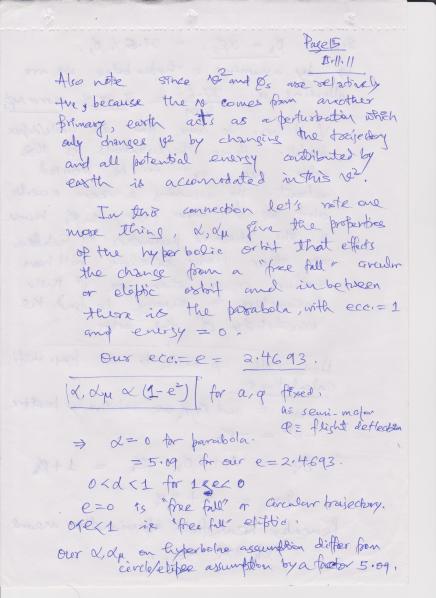 Page 5
15.11.11
Also note since v² and φs are relatively
+ve, because the v comes from another
primary, earth acts as a perturbation which
only changes v² by changing the trajectory
and all potential energy contributed by
earth is accomodated in this v².
In this connection let's note one
more thing, α, αμ give the properties
of the hyperbolic orbit that effects
the change from a "free fall" circular
or eliptic orbit and in between
there is the parabola, with ecc. = 1
and energy = 0.
Our ecc. = e = 2.4693.
α, αμ ∝ (1-e²) for a, φ fixed.
a = semi-major
φ ≡ flight deflection
⇒ α = 0 for parabola.
= 5.09 for our e = 2.4693.
0<α<1 for 1<e<0
e=0 is "free fall" or circular trajectory.
0<e<1 is "free fall" eliptic.
Our α, αμ on hyperbolic assumption differ from
circle/elipse assumption by a factor 5.09.